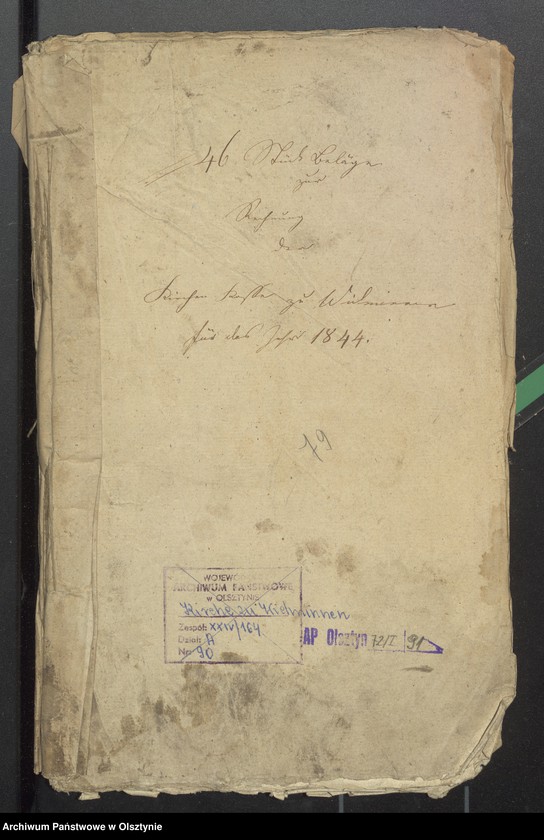 46 Stück Beläge
zur
Rechnung
der
Kirchen Kasse zu Widminnen
für das Jahr 1844.
79
WOJEW
ARCHIWUM PAŃSTWOWE
w OLSZTYNIE
Kirche zu Widminnen
Zespół: XXIV/164
Dział: A
Nr 90
AP Olsztyn 72/I 91
Archiwum Państwowe w Olsztynie